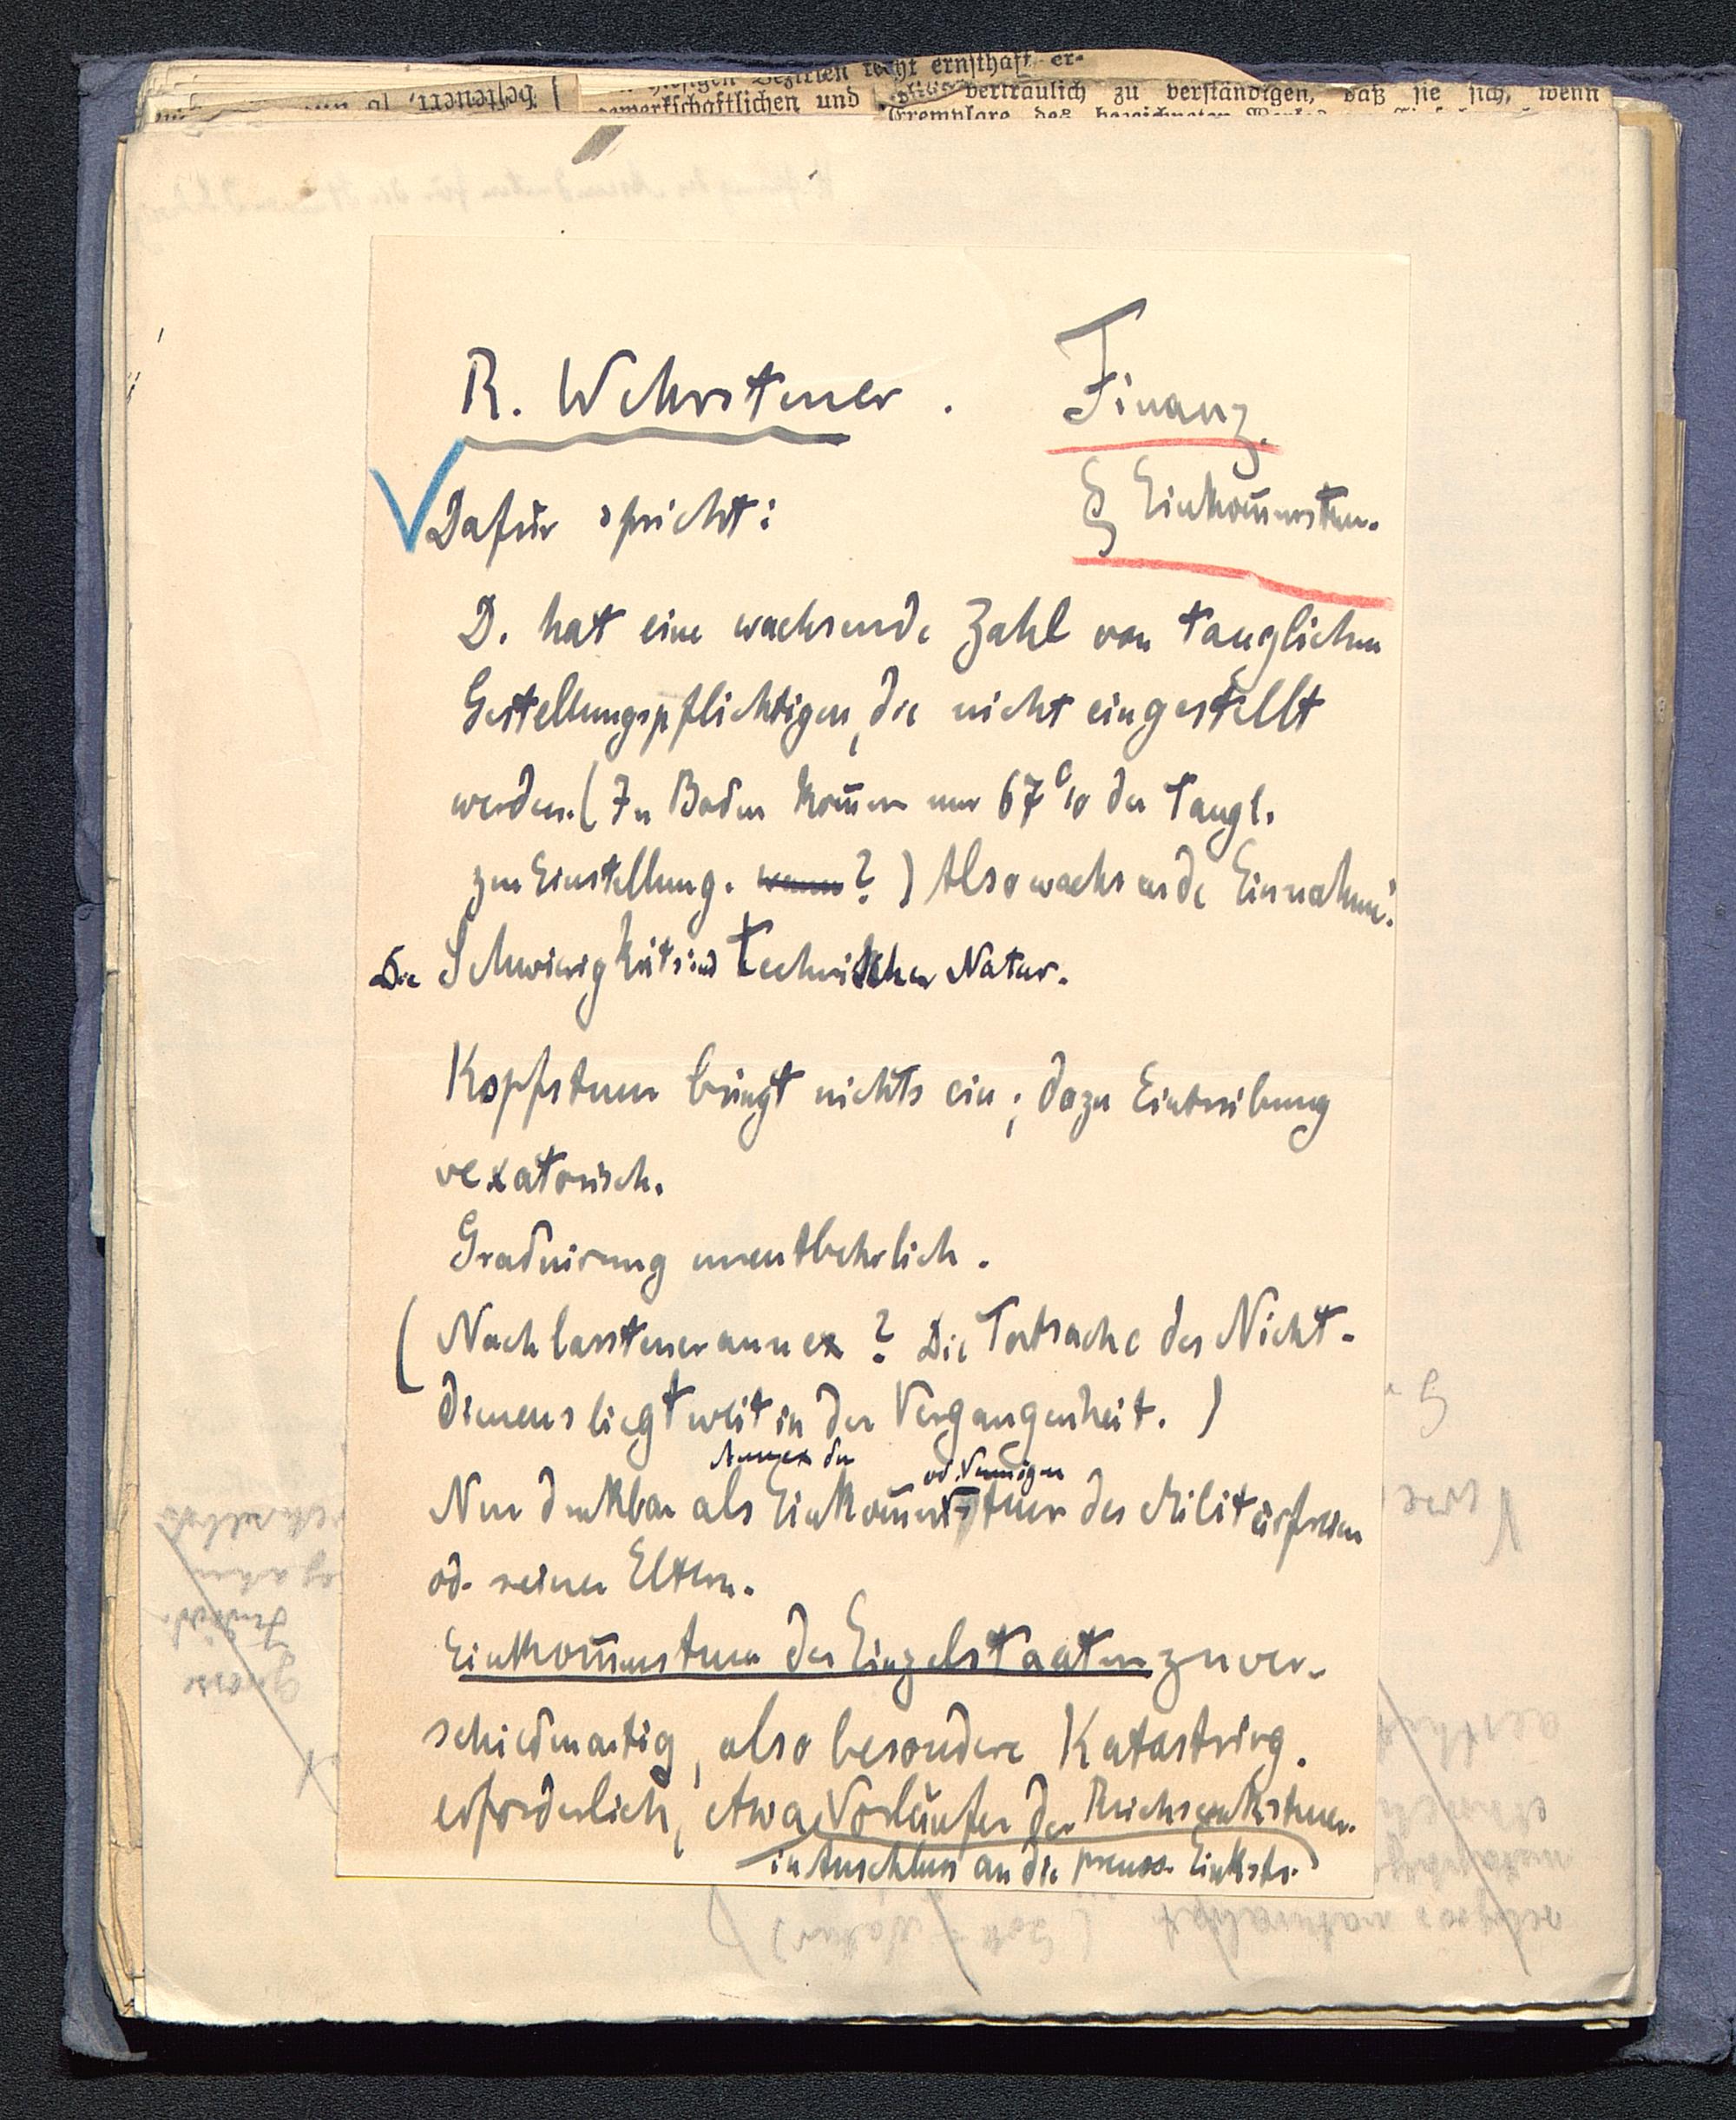 besteuert, so
Bezirken recht ernsthaft er-
gewerkschaftlichen und
vertraulich zu verständigen, daß sie sich, wenn
Exemplare des bezeichneten
R. Wehrsteuer.
Finanz.
§ Einkom̅ensteu.
Dafür spricht:
D. hat eine wachsende Zahl von tauglichen
Gestellungspflichtigen, die nicht eingestellt
werden. (In Baden kom̅en nur 67% der Taugl.
zur Einstellung. wann? ) Also wachsende Einnahme!
Die Schwierigkeit sind technischer Natur.
Kopfsteuer bringt nichts ein; dazu Eintreibung
vexatorisch.
Graduirung unentbehrlich.
(Nachlassteuerannex? Die Tatsache des Nicht-
dienens liegt weit in der Vergangenheit. )
Annex der
od. Vermögen
Nur denkbar als Einkom̅ensteuer des Militärfreien
od. seiner Eltern.
Einkom̅ensteuer der Einzelstaaten zu ver-
schiedenartig, also besondere Katastrirg.
erforderlich, etwa Vorläufer der Reichseinkstuer.
in Anschluss an die preuss. Einksts.